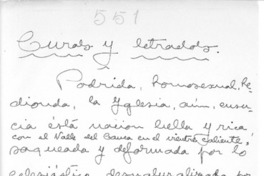 551
Curas y letrados.
Podrida, homosexual, he
dionda, la Yglesia, aun, en su
cia está nacion bella y rica
con el Valle del Cauca en el vientre caliente,
saqueada y deformada por lo